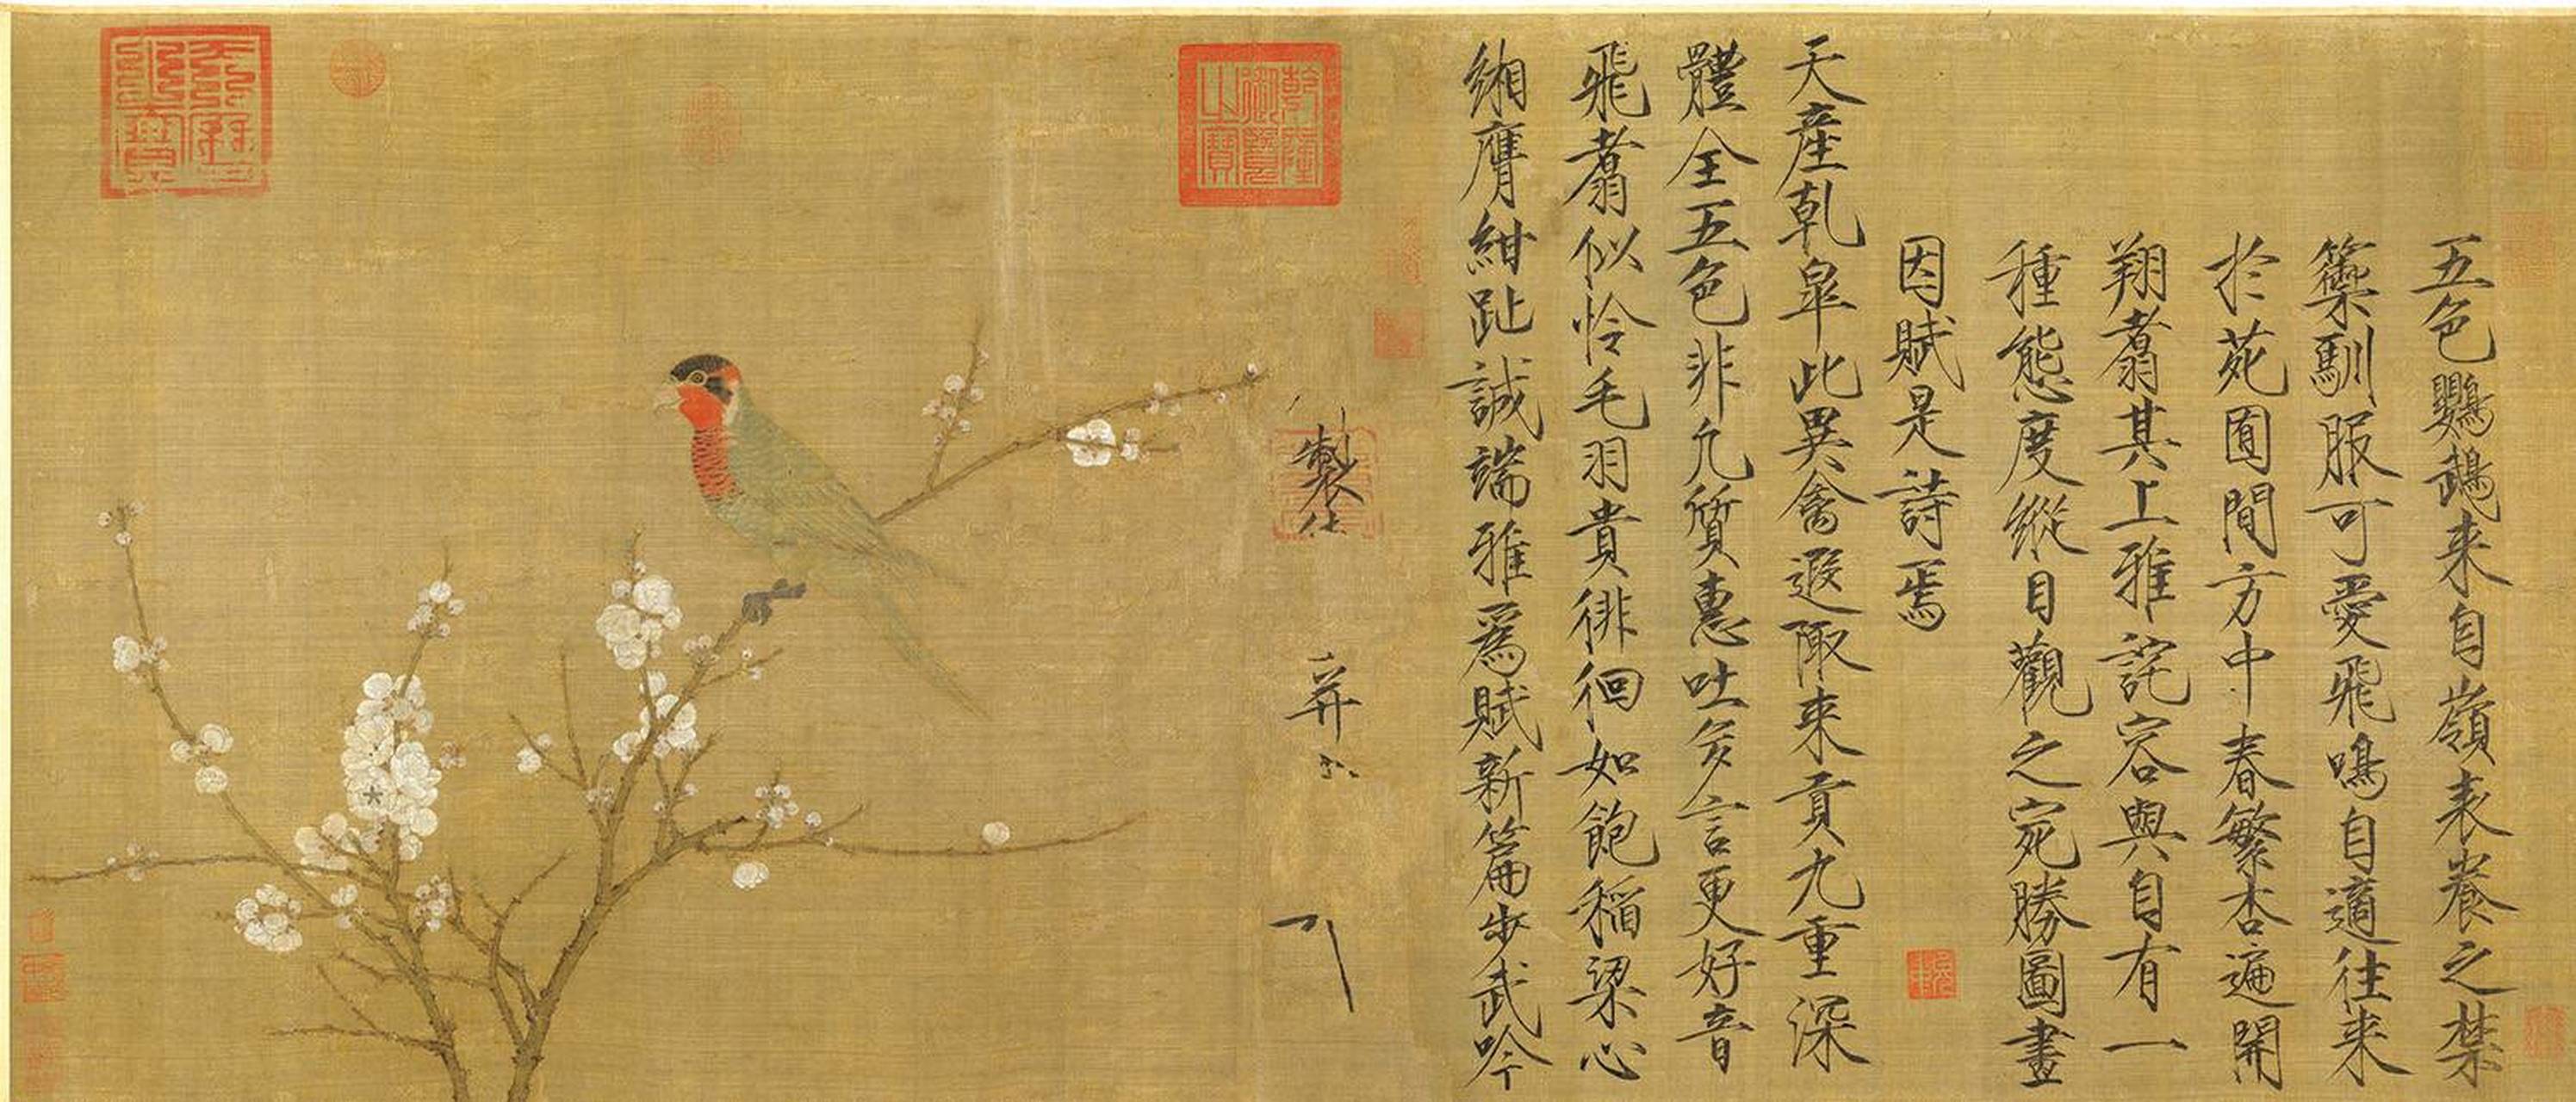 五色鸚鵡来自嶺表養之禁
籞馴服可愛飛鳴自適往来
於苑囿間方中春繁杏遍開
翔翥其上雅詫容與自有一
種態度縱目觀之宛勝圖畫
因賦是詩焉
天産乾皐此異禽遐陬来貢九重深
體全五色非凡質惠吐多言更好音
飛翥似怜毛羽貴徘徊如飽稲粱心
緗膺紺趾誠端雅爲賦新篇步武吟
製
乾隆御覽之寶
天曆之寶